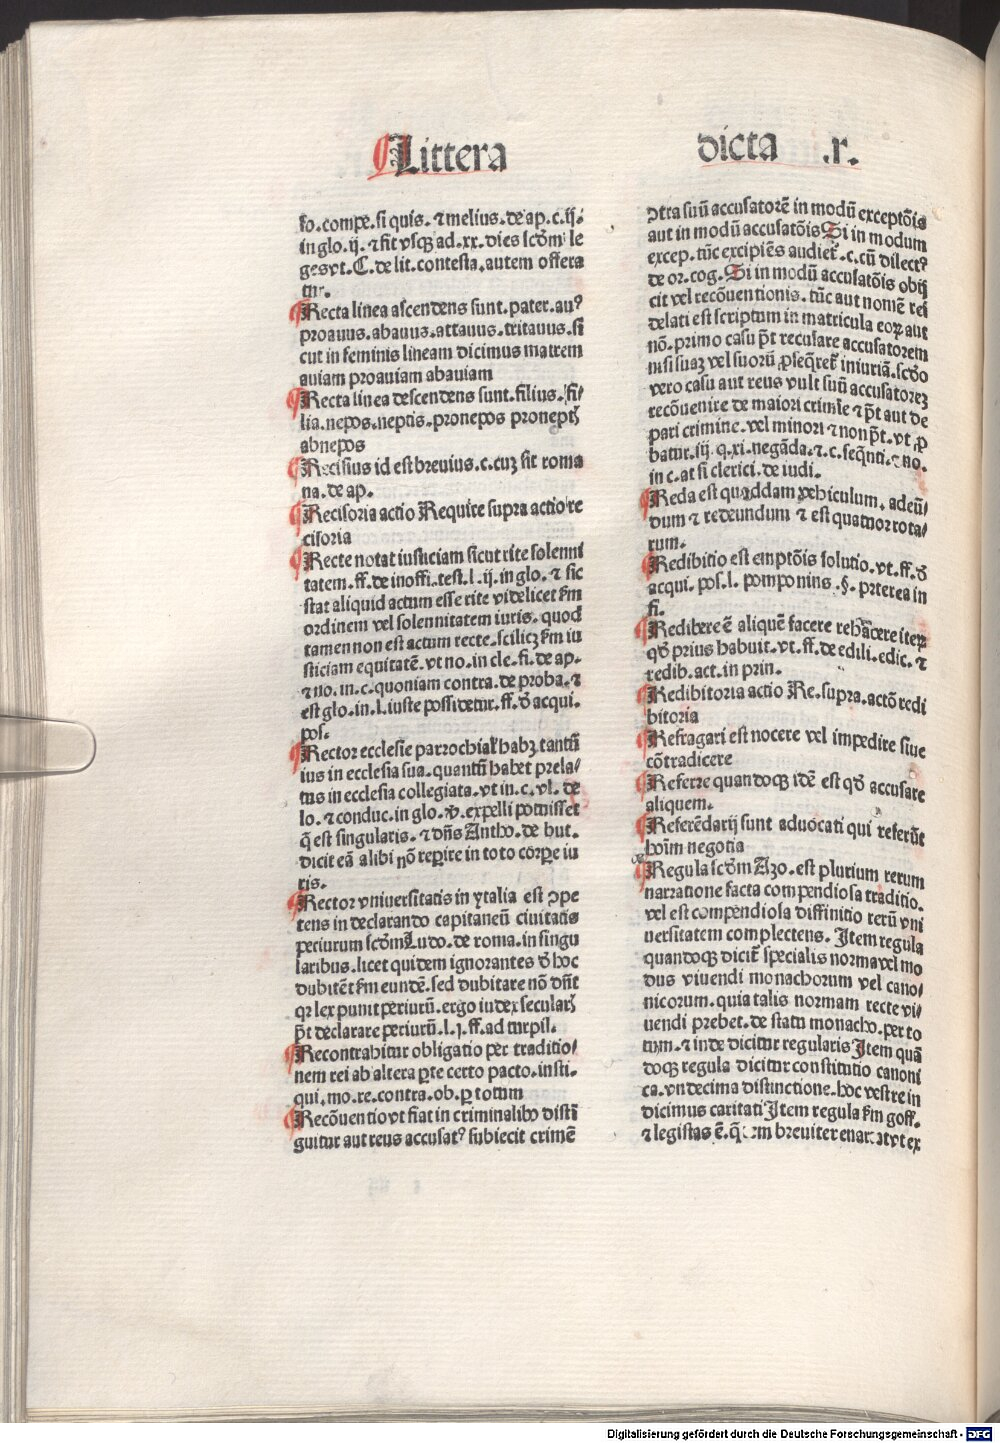 Littera dicta .r.
fo. compe. si quis. ⁊ melius. de ap. c. ij.
in glo. ij. ⁊ fit vsqꝫ ad. xx. dies scd̄m le
ges vt. C. de lit. contesta. autem offera
tur.
Recta linea ascendens sunt. pater. auꝰ
proauus. abauus. attauus. tritauus. si
cut in feminis lineam dicimus matrem
auiam proauiam abauiam
Recta linea descendens sunt. filius. fi/
lia. nepos. neptis. pronepos proneptꝭ
abnepos
Recisius id est breuius. c. cuꝫ sit roma
na. de ap.
Recisoria actio Require supra actio re
cisoria
Recte notat iusticiam sicut rite solenni
tatem. ff. de inoffi. test. l. ij. in glo. ⁊ sic
stat aliquid actum esse rite videlicet ẜm
ordinem vel solennitatem iuris. quod
tamen non est actum recte. scilicꝫ ẜm iu
sticiam equitatē. vt no. in cle. fi. de ap.
⁊ no. in. c. quoniam contra. de proba. ⁊
est glo. in. l. iuste possidetur. ff. đ acqui.
pos.
Rector ecclesie parrochial' habꝫ tantū
ius in ecclesia sua. quantū habet prela/
tus in ecclesia collegiata. vt in. c. vl. de
lo. ⁊ conduc. in glo. v̄. expelli potuisset
q̄ est singularis. ⁊ dn̄s Antho. de but.
dicit eā alibi nō reꝑire in toto corꝑe iu
ris.
Rector vniuersitatis in ytalia est ↄpe
tens in declarando capitaneū ciuitatis
periurum scd̄m Ludo. de roma. in singu
laribus. licet quidem ignorantes đ hoc
dubitēt ẜm eundē. sed dubitare nō dn̄t
qꝛ lex punit periurū. ergo iudex secularꝭ
p̄t declarare periurū. l. j. ff. ad turpil.
Recontrahitur obligatio per traditio/
nem rei ab altera ꝑte certo pacto. insti.
qui. mo. re. contra. ob. ꝑ totum
Recōuentio vt fiat in criminalibꝰ disti
guitur aut reus accusatꝰ subiecit crimē
ↄtra suū accusatorē in modū exceptōis
aut in modū accusatōis Si in modum
excep. tūc excipiēs audiet̄. c. cū dilectꝰ
de or. cog. Si in modū accusatōis obij
cit vel recōuentionis. tūc aut nomē rei
delati est scriptum in matricula eoꝝ aut
nō. primo casu p̄t recusare accusatorem
nisi suaꝫ vel suorū ꝓseq̄ret̄ iniuriā. scd̄o
vero casu aut reus vult suū accusatoreꝫ
recōuenire de maiori crimīe ⁊ p̄t aut de
pari crimine. vel minori ⁊ non p̄t. vt ꝓ
batur. iij. q. xi. negāda. ⁊. c. seq̄nti. ⁊ no.
in c. at si clerici. de iudi.
Reda est quoddam vehiculum. adeū/
dum ⁊ redeundum ⁊ est quatuor rota/
rum.
Redibitio est emptōis solutio. vt. ff. đ
acqui. pos. l. pomponius. §. preterea in
fi.
Redibere ē aliquē facere rehacere iteꝝ
qđ prius habuit. vt. ff. de edili. edic. ⁊
redib. act. in prin.
Redibitoria actio Re. supra. actō redi
bitoria
Refragari est nocere vel impedire siue
cōtradicere
Referre quandoqꝫ idē est qđ accusare
aliquem.
Referēdarij sunt aduocati qui referūt
hoīm negotia
Regula scd̄m Azo. est plurium rerum
narratione facta compendiosa traditio.
vel est compendiosa diffinitio rerū vni
uersitatem complectens. Item regula
quandoqꝫ dicit̄ specialis norma vel mo
dus viuendi monachorum vel cano/
nicorum. quia talis normam recte vi/
uendi prebet. de statu monacho. per to
tum. ⁊ inde dicitur regularis Item quā
doqꝫ regula dicitur constitutio canoni
ca. vndecima distinctione. hoc vestre in
dicimus caritati Item regula ẜm goff.
⁊ legistas ē. breuiter vt ex